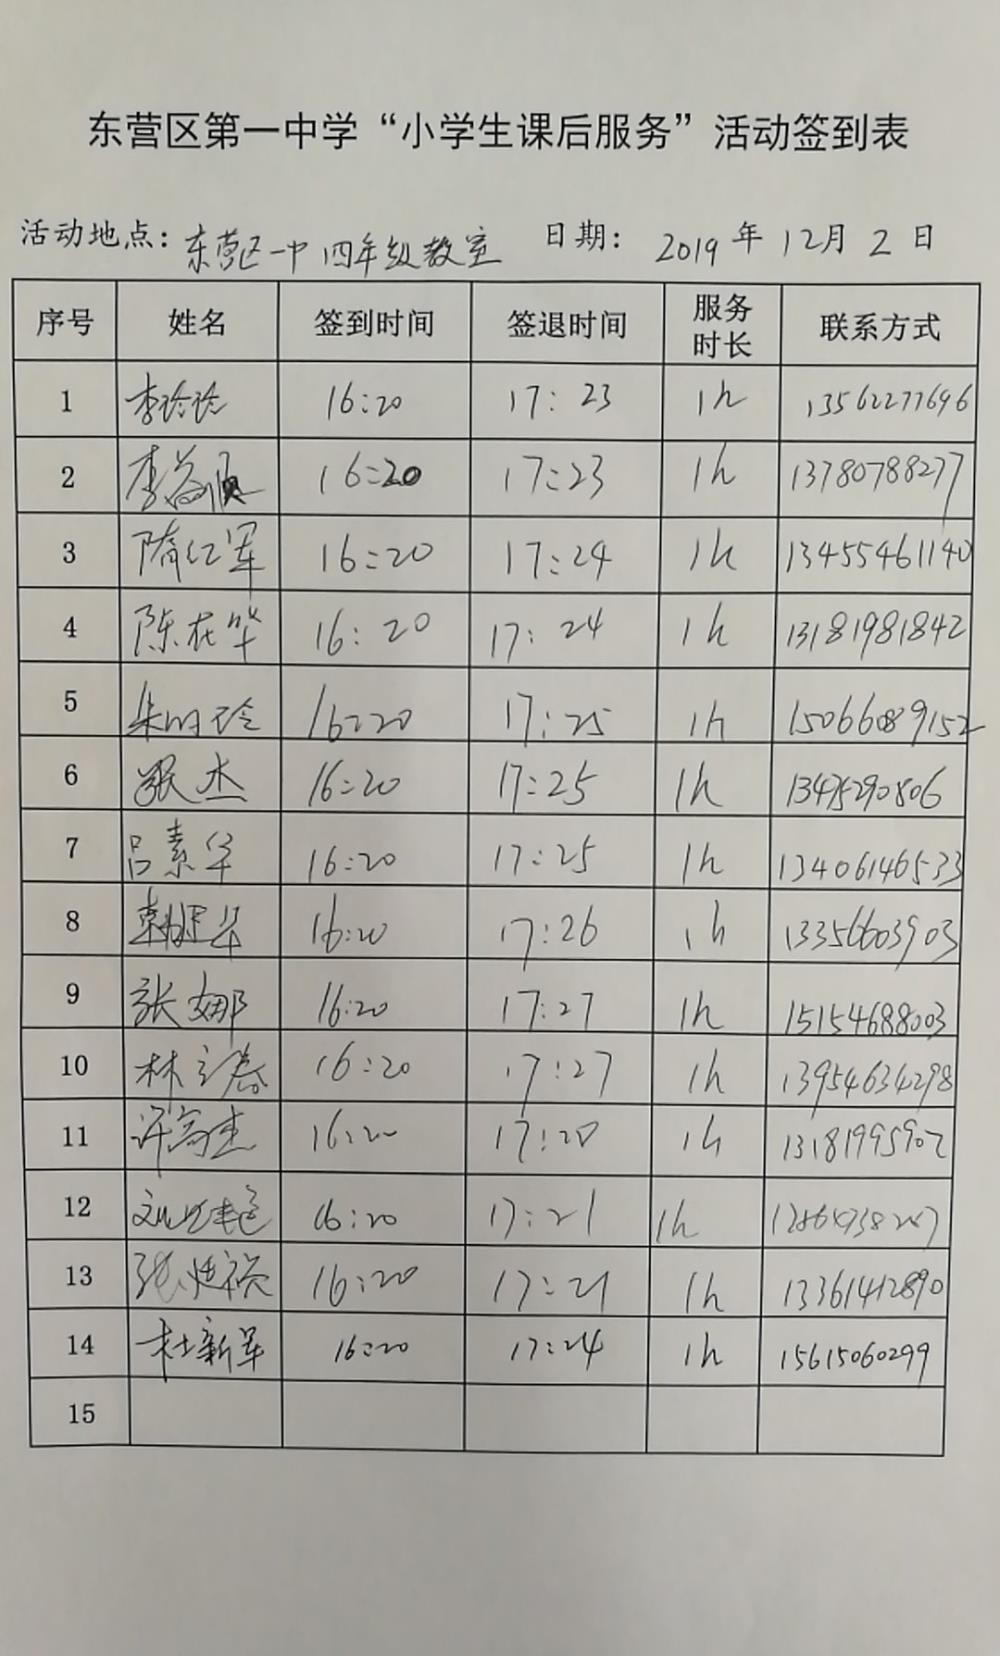 东营区第一中学“小学生课后服务”活动签到表
活动地点：东营区一中四年级教室 日期：2019年12月2日
序号 姓名 签到时间 签退时间 服务时长 联系方式
1 李玲玲 16:20 17:23 1h 13562277696
2 李益顺 16:20 17:23 1h 13780788277
3 隋红军 16:20 17:24 1h 13455461140
4 陈在华 16:20 17:24 1h 13181981842
5 朱明玲 16:20 17:25 1h 15066089152
6 张杰 16:20 17:25 1h 13475290806
7 吕素华 16:20 17:25 1h 13406146533
8 16:20 17:26 1h 13356603903
9 张娜 16:20 17:27 1h 15154688003
10 林立春 16:20 17:27 1h 13954634298
11 许高杰 16:20 17:20 1h 13181995902
12 16:20 17:21 1h
13 16:20 17:21 1h 13361412890
14 杜新军 16:20 17:24 1h 15615060299
15